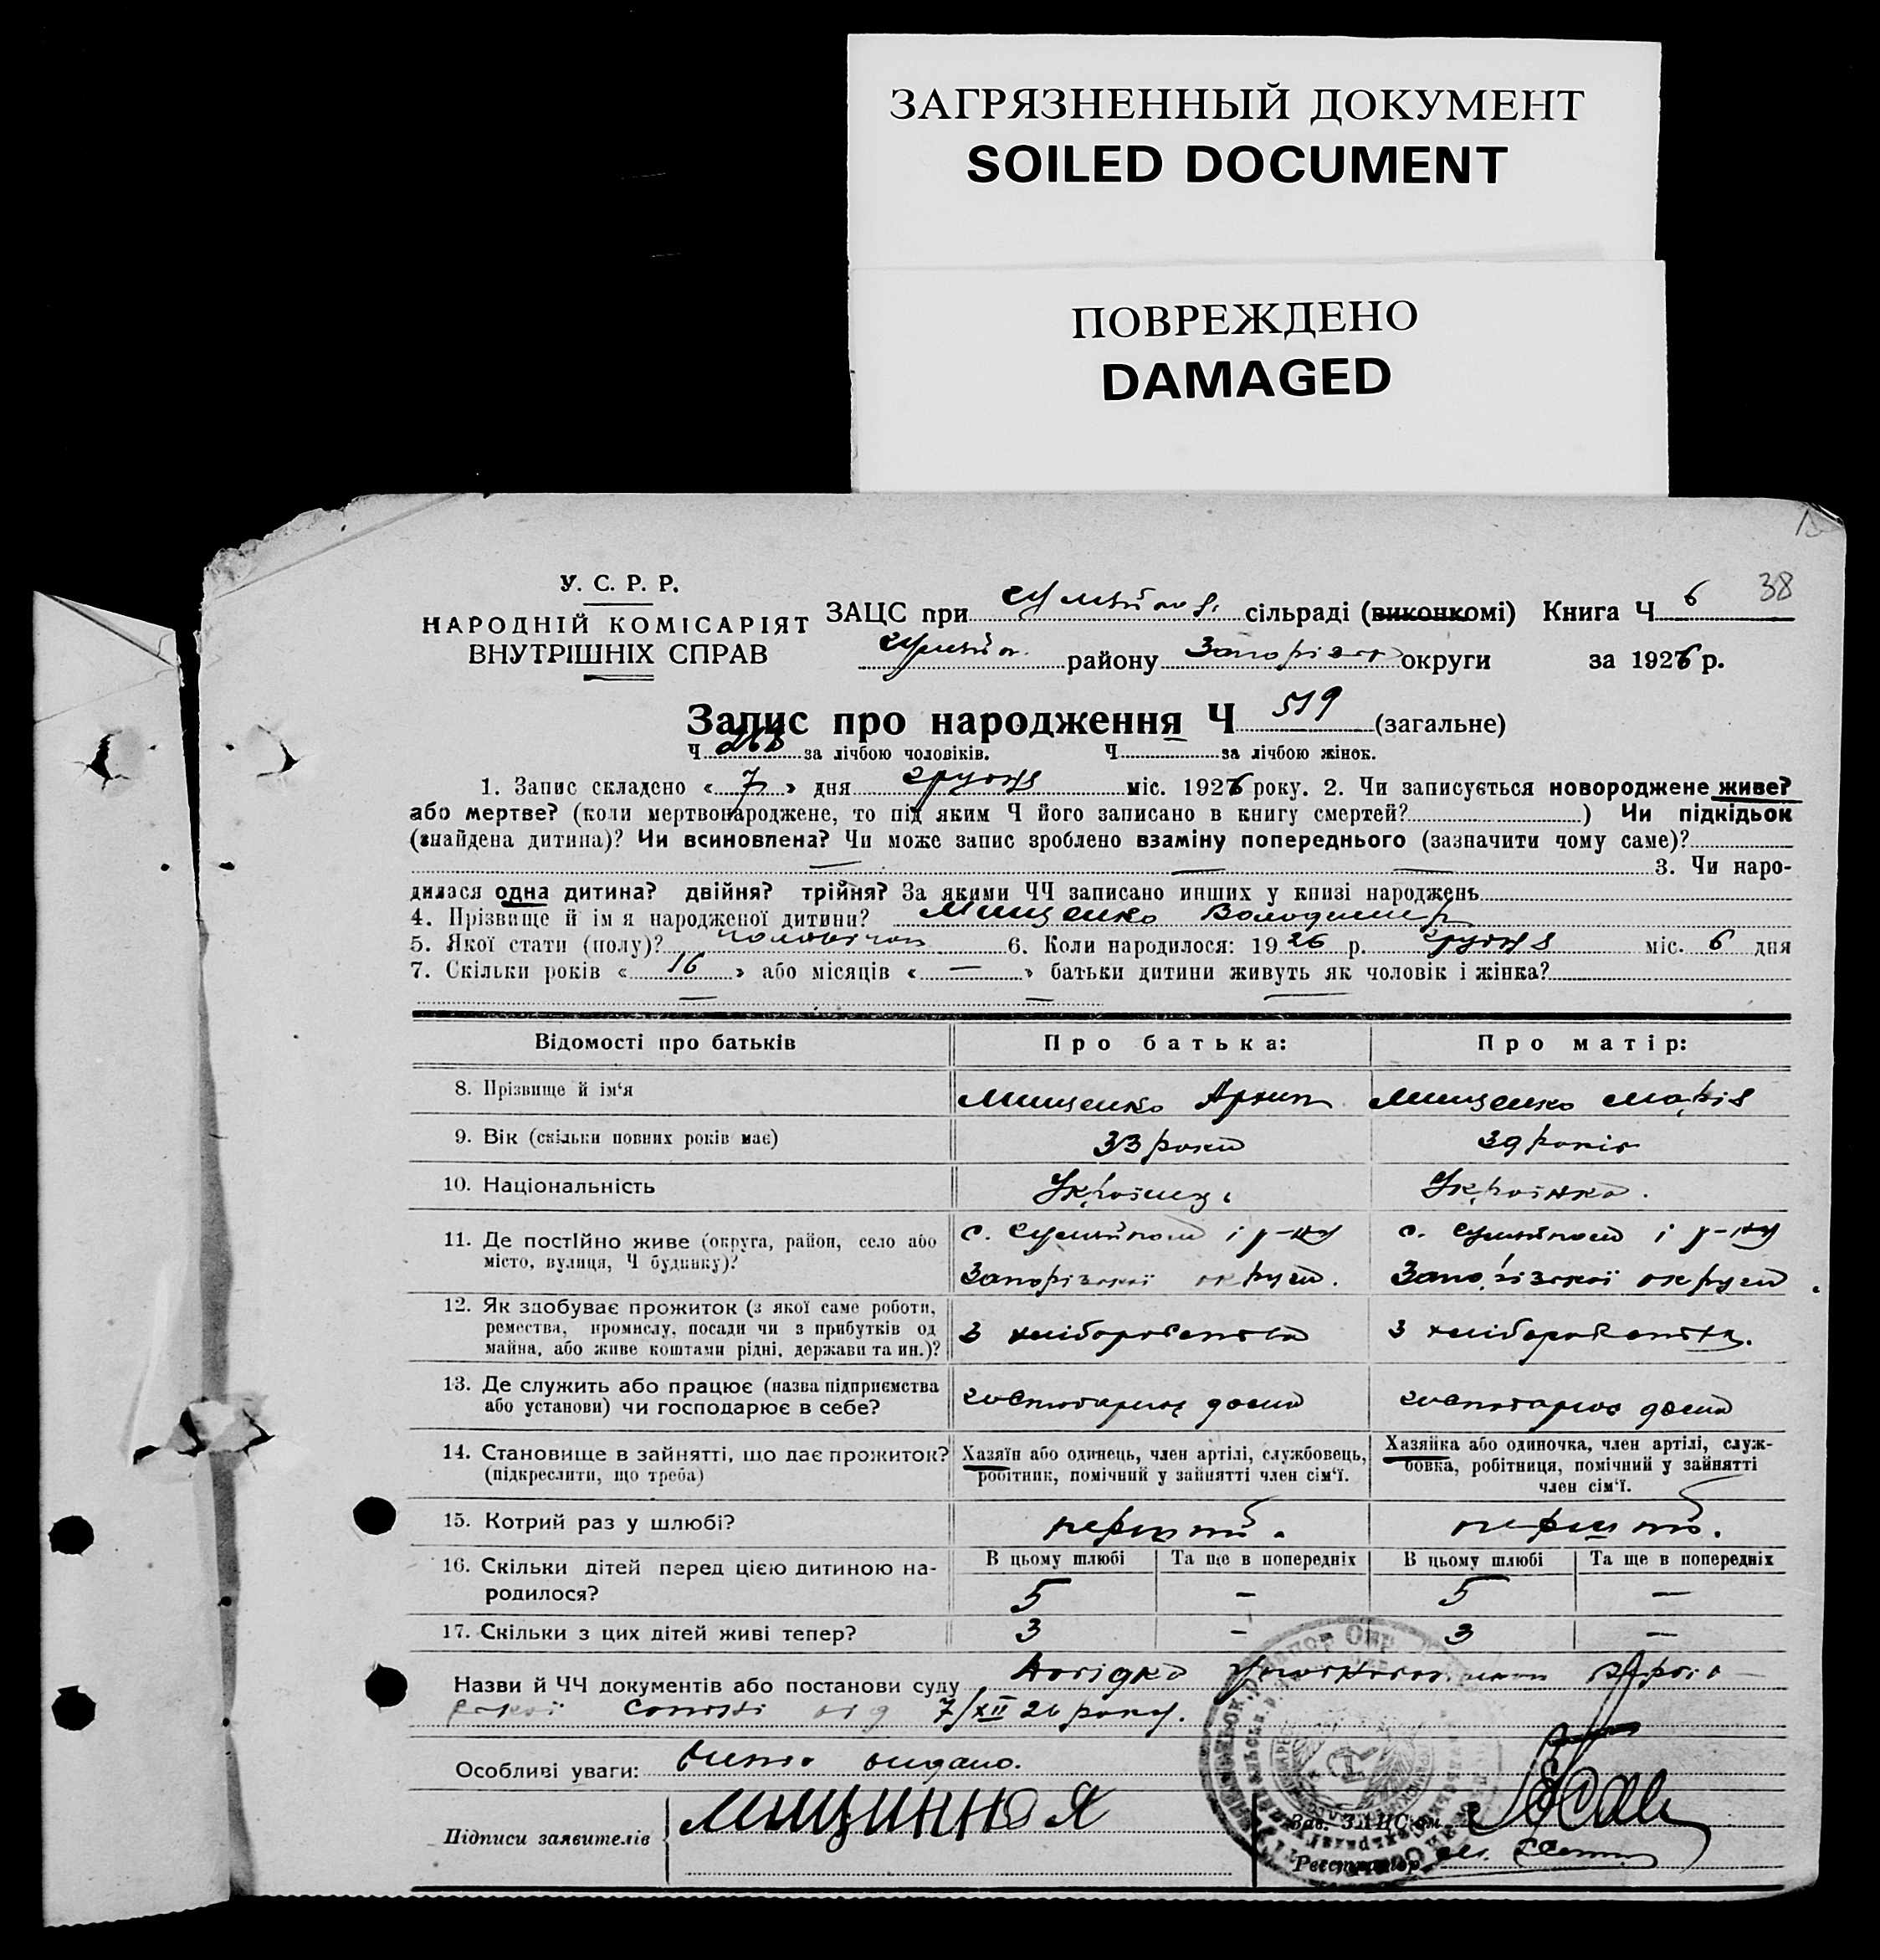 ЗАГРЯЗНЕННЫЙ ДОКУМЕНТ
SOILED DOCUMENT
ПОВРЕЖДЕНО
DAMAGED
38
У. С. Р. Р.
НАРОДНІЙ КОМІСАРІЯТ
ВНУТРІШНІХ СПРАВ
ЗАЦС при сільраді (виконкомі) Книга Ч 6
району Запорізк округи за 1926 р.
Запис про народження Ч 519 (загальне)
Ч за лічбою чоловіків. Ч за лічбою жінок.
1. Запис складено « 7 » дня грудня міс. 1926 року. 2. Чи записується новороджене живе?
або мертве? (коли мертвонароджене, то під яким Ч його записано в книгу смертей? ) Чи підкідьок
(знайдена дитина)? Чи всиновлена? Чи може запис зроблено взаміну попереднього (зазначити чому саме)?
— — — 3. Чи наро-
дилася одна дитина? двійня? трійня? За якими ЧЧ записано инших у книзі народжень
4. Прізвище й ім я народженої дитини? Мищенко Володимир
5. Якої стати (полу)? чоловічої 6. Коли народилося: 1926 р. грудня міс. 6 дня
7. Скільки років « 16 » або місяців « — » батьки дитини живуть як чоловік і жінка?
— — —
Відомості про батьків Про батька: Про матір:
8. Прізвище й ім'я Мищенко Архип Мищенко Марія
9. Вік (скільки повних років має) 33 роки 39 років
10. Національність Українец Українка.
11. Де постійно живе (округа, район, село або с. і р-ну с. і р-ну
місто, вулиця, Ч будинку)? Запорізької округи. Запорізької округи.
12. Як здобуває прожиток (з якої саме роботи,
ремества, промислу, посади чи з прибутків од з хліборобства з хліборобства.
майна, або живе коштами рідні, держави та ин.)?
13. Де служить або працює (назва підприємства господарює дома господарює дома
або установи) чи господарює в себе?
14. Становище в зайнятті, що дає прожиток? Хазяїн або одинець, член артілі, службовець, Хазяйка або одиночка, член артілі, служ-
(підкреслити, що треба) робітник, помічний у зайнятті член сім'ї. бовка, робітниця, помічний у зайнятті
член сім'ї.
15. Котрий раз у шлюбі? перший. перший.
16. Скільки дітей перед цією дитиною на- В цьому шлюбі Та ще в попередніх В цьому шлюбі Та ще в попередніх
родилося? 5 — 5 —
17. Скільки з цих дітей живі тепер? 3 — 3 —
Назви й ЧЧ документів або постанови суду Довідка
від 7/XII 26 року.
Особливі уваги: видано.
Підписи заявителів
Зав. ЗАЦС'ом
Реєстратор